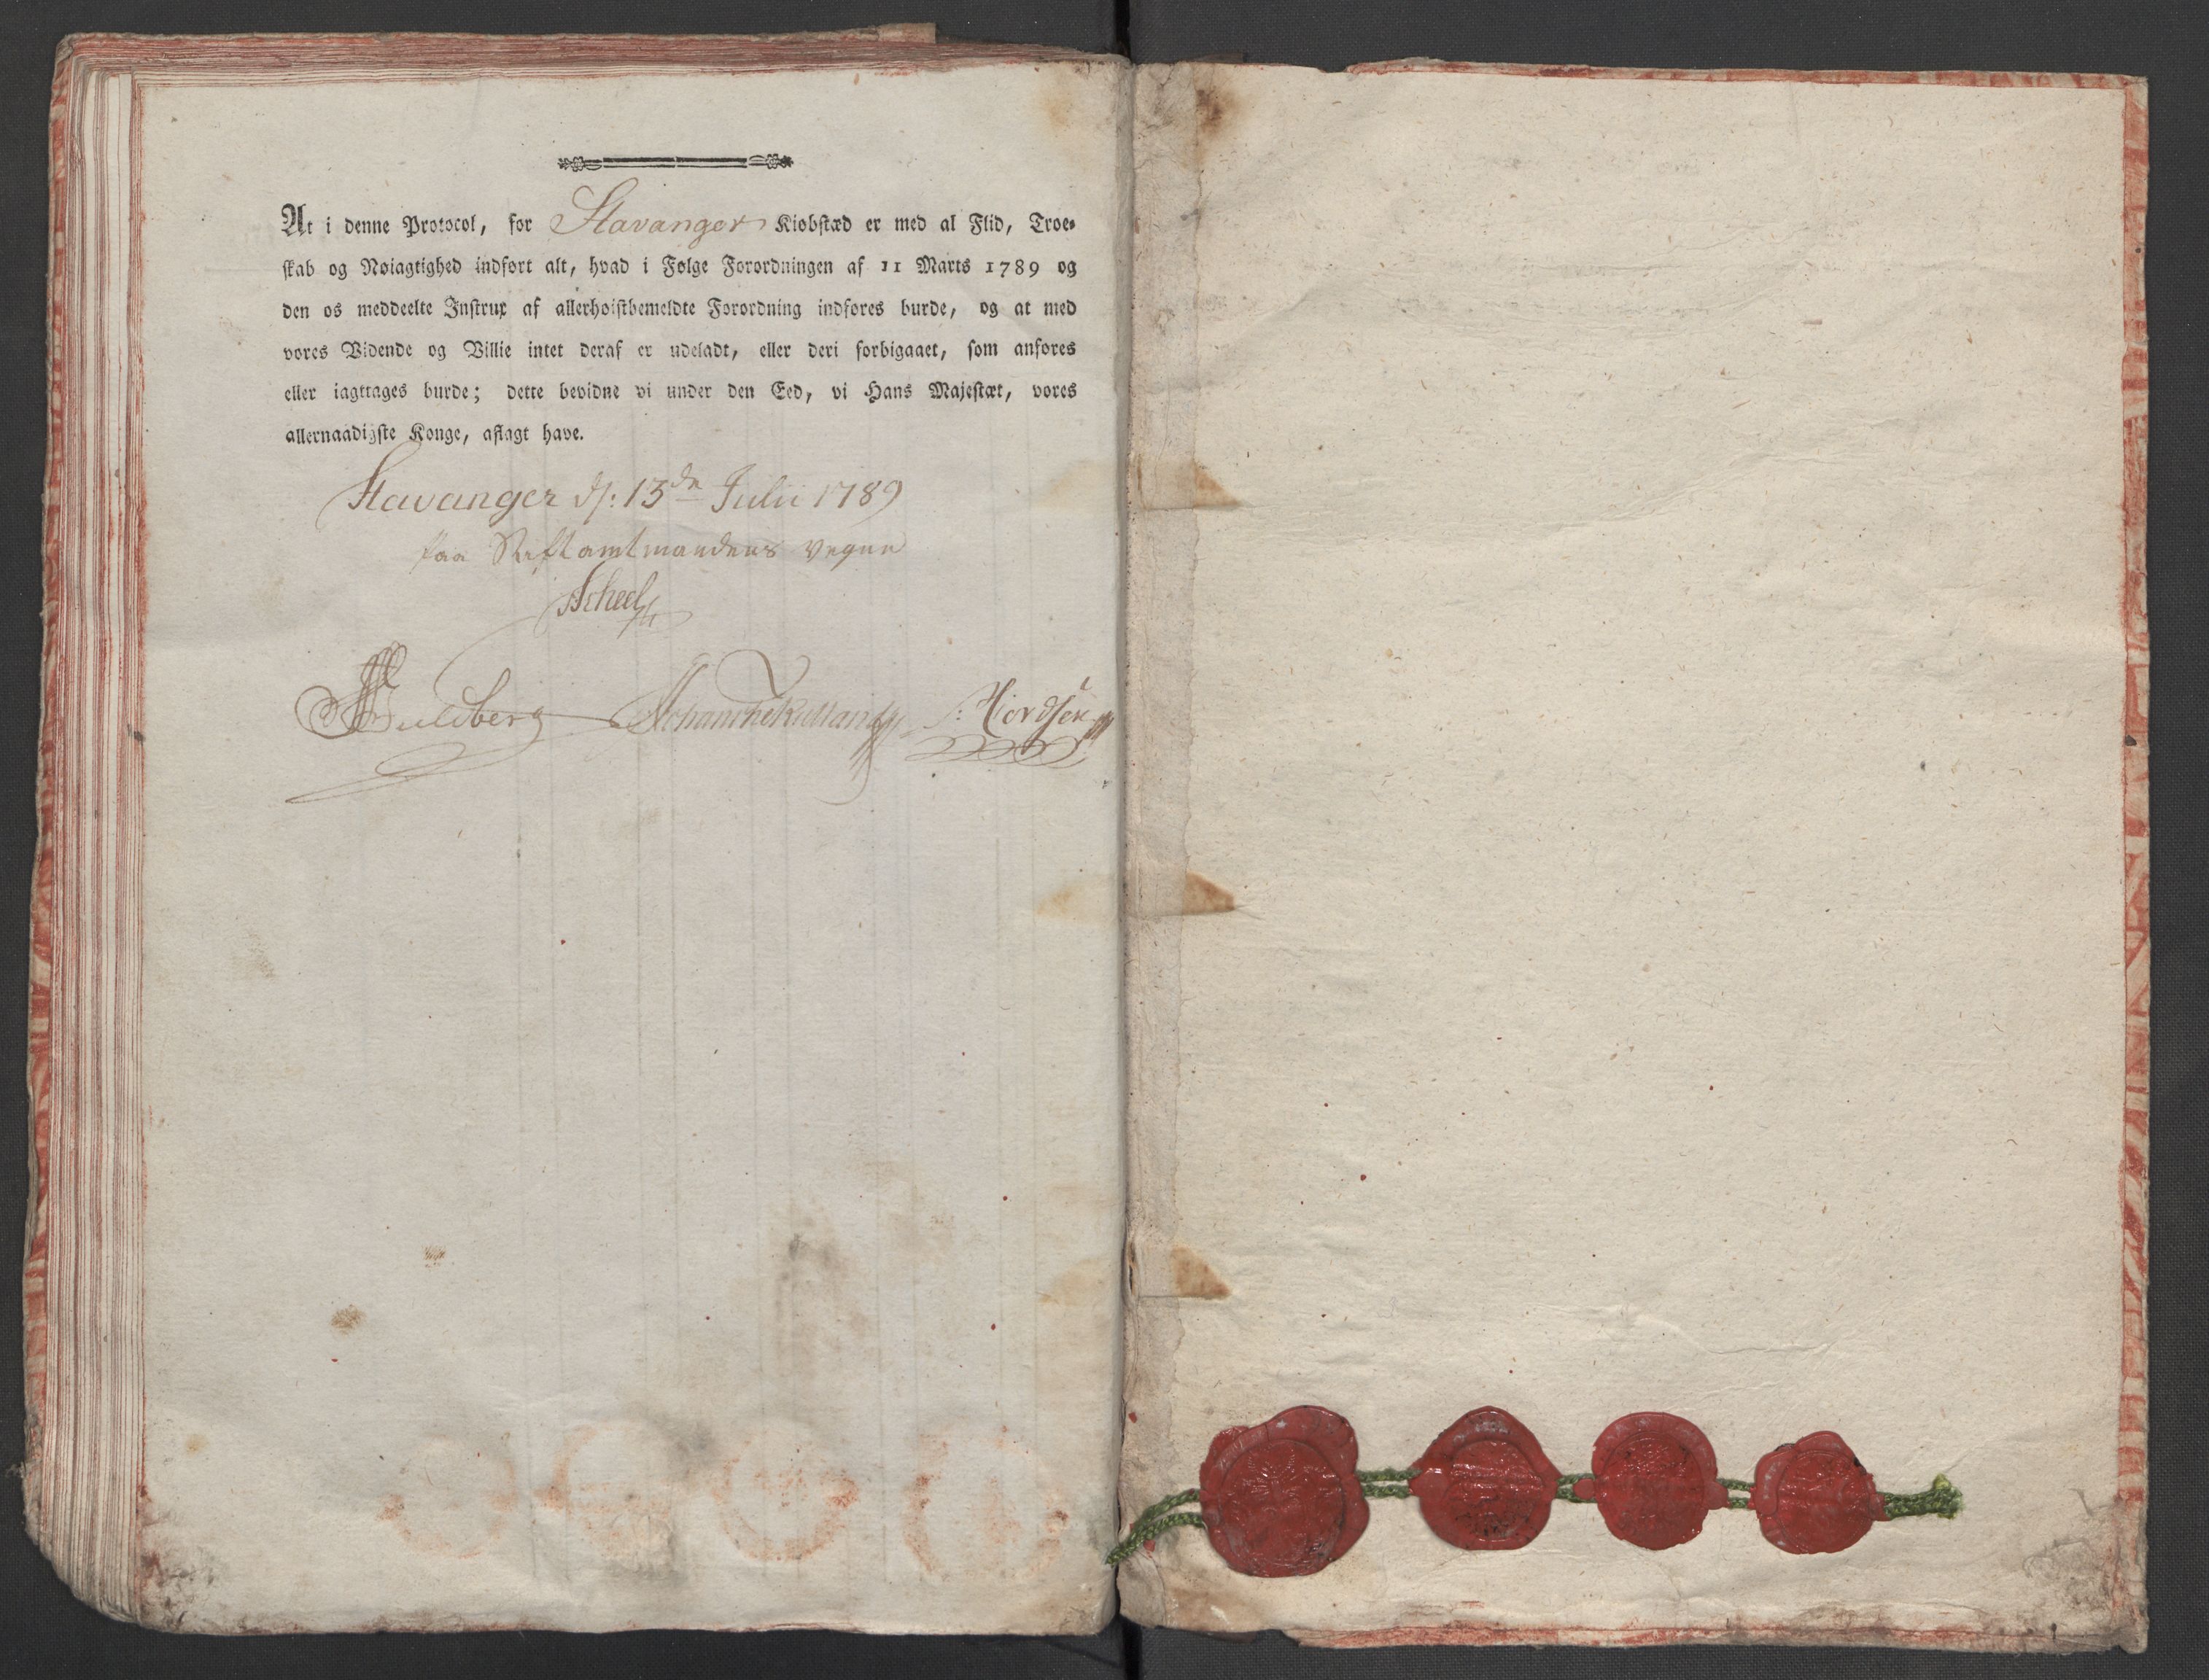 At i denne Protocol, for Stavanger Kiøbstæd er med al Flid, Troe-
skab og Nøiagtighed indført alt, hvad i Følge Forordningen af 11 Marts 1789 og
den os meddeelte Instrux af allerhøistbemeldte Forordning indføres burde, og at med
vores Vidende og Villie intet deraf er udeladt, eller deri forbigaaet, som anføres
eller iagttages burde; dette bevidne vi under den Eed, vi Hans Majestæt, vores
allernaadigste Konge, aflagt have.
Stavanger d: 13de Julii 1789
paa Stiftamtmandens vegne
Scheel
Guldberg Schanche Kielland Hiordtsen